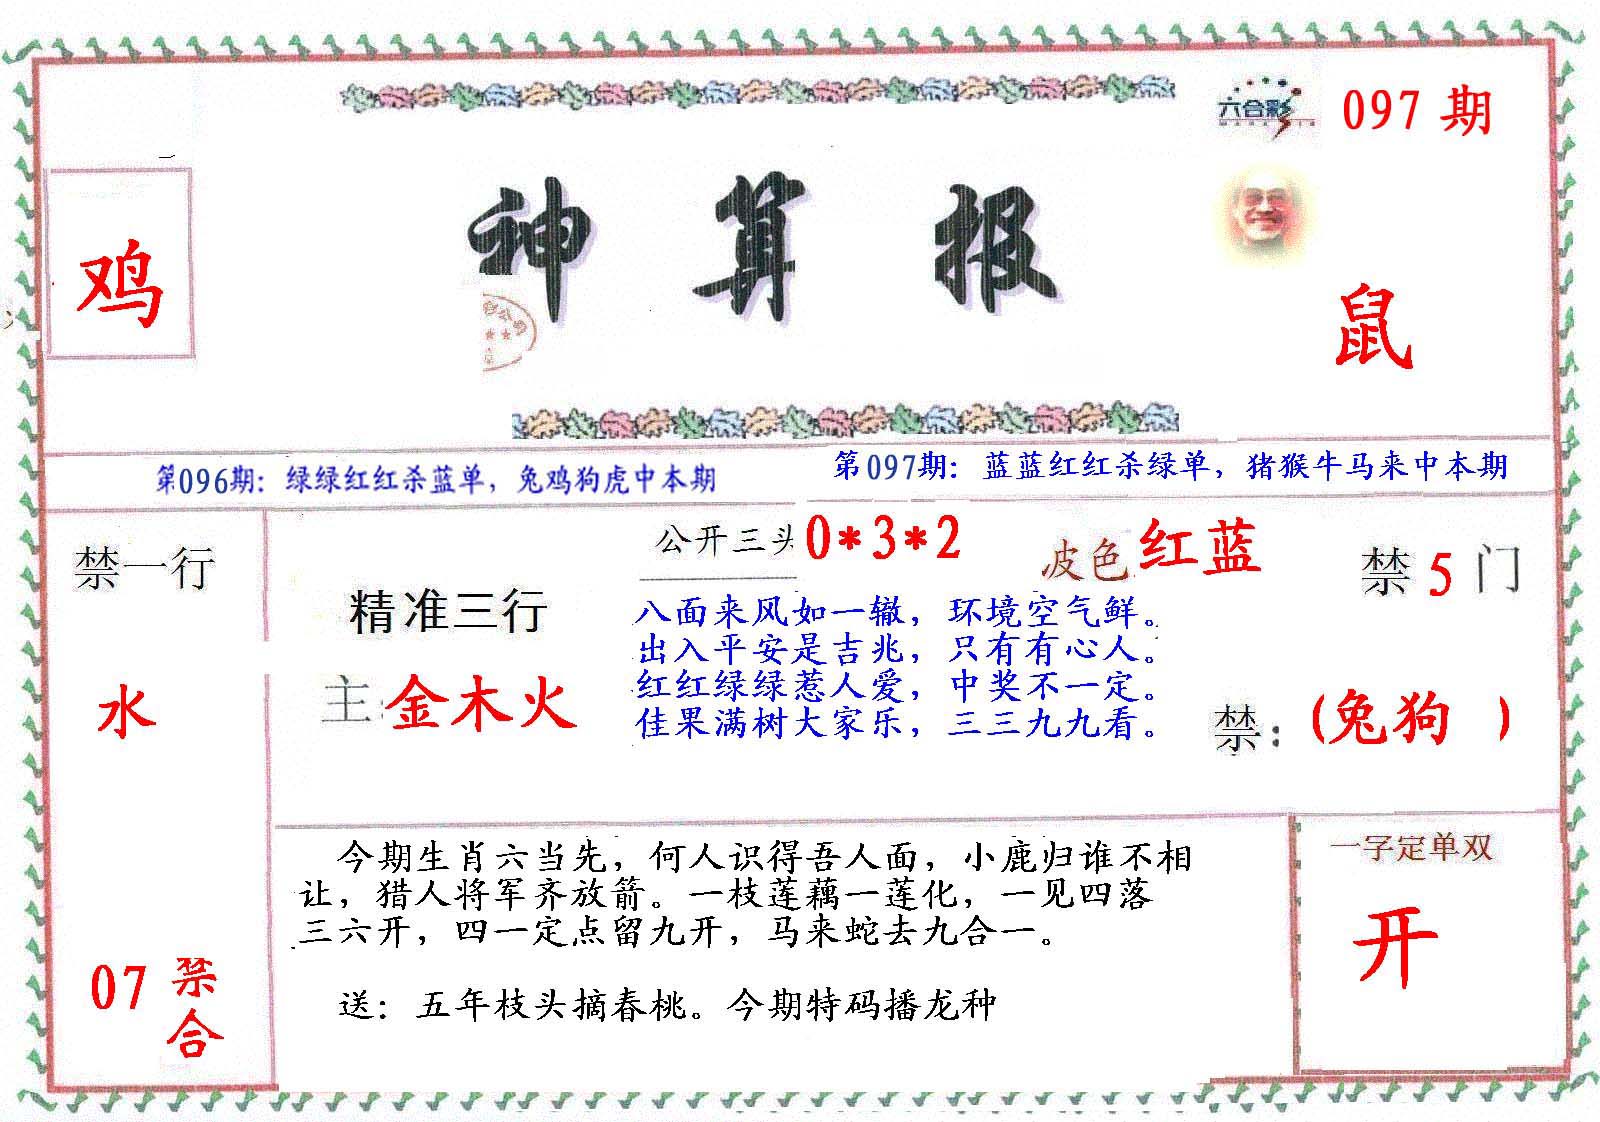 六合彩
097 期
鸡
神算报
鼠
第096期：绿绿红红杀蓝单，兔鸡狗虎中本期
第097期：蓝蓝红红杀绿单，猪猴牛马来中本期
禁一行
水
07 禁
合
精准三行
主: 金木火
公开三头 0*3*2
波色 红蓝
禁 5 门
八面来风如一辙，环境空气鲜。
出入平安是吉兆，只有有心人。
红红绿绿惹人爱，中奖不一定。
佳果满树大家乐，三三九九看。
禁：(兔狗 )
今期生肖六当先，何人识得吾人面，小鹿归谁不相
让，猎人将军齐放箭。一枝莲藕一莲化，一见四落
三六开，四一定点留九开，马来蛇去九合一。
送：五年枝头摘春桃。今期特码播龙种
一字定单双
开